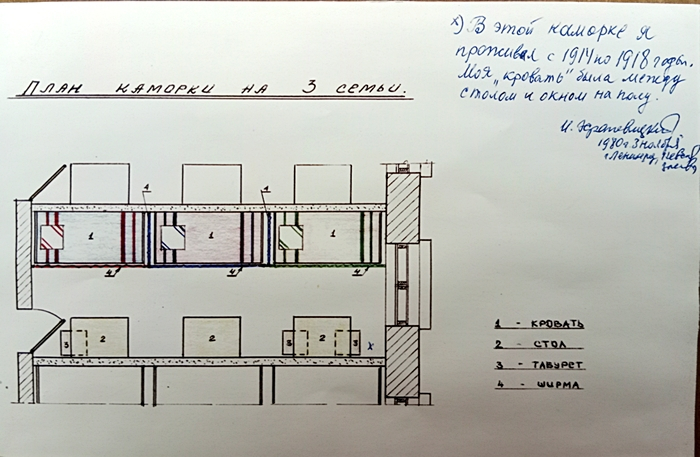 х) В этой каморке я
проживал с 1914 по 1918 годы.
Моя „кровать" была между
столом и окном на полу.
1980 г 3 ноября
г Ленинград,
План каморки на 3 семьи.
1 1
1 1 1
4 4 4
2 2 2
3 3 3 х
1 - кровать
2 - стол
3 - табурет
4 - ширма